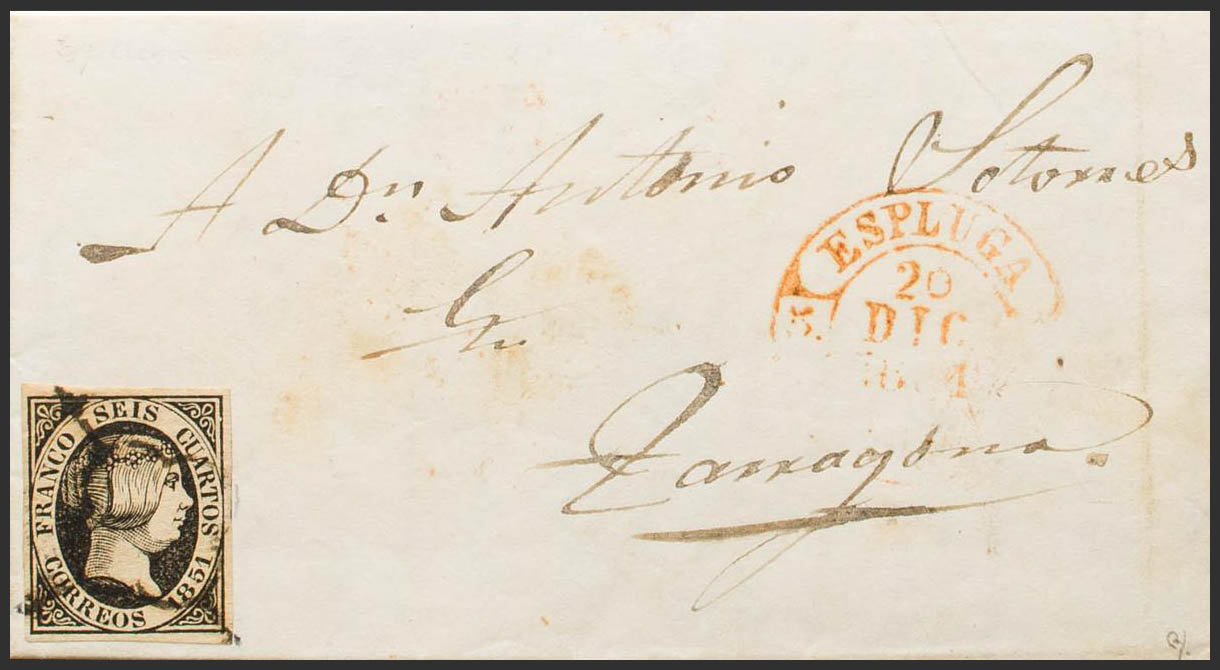 A Dn. Antonio Sotorres
En
Tarragona.
ESPLUGA
20
DIC
FRANCO SEIS CUARTOS
CORREOS 1851